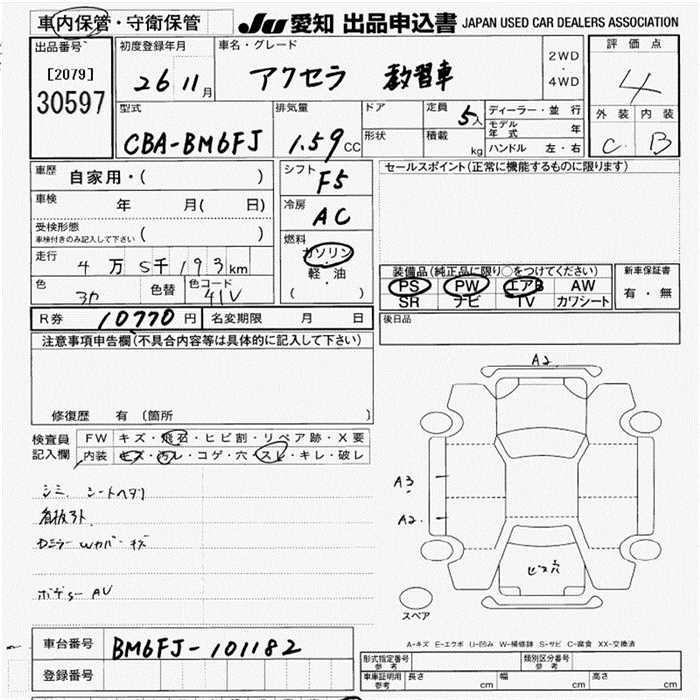 車内保管・守衛保管
JU 愛知 出品申込書 JAPAN USED CAR DEALERS ASSOCIATION
出品番号
[2079]
30597
初度登録年月
26 11月
車名・グレード
アクセラ 教習車
2WD
・
4WD
評価点
4
外装 内装
C B
型式
CBA-BM6FJ
排気量
1.59cc
ドア
形状
定員 5人
積載 kg
ディーラー・並行
モデル年式 年
ハンドル 左・右
車歴 自家用・( )
車検 年 月( 日)
受検形態
車検付きのみ記入して下さい ( )
走行 4万5千193km
色
色替
色コード
41V
シフト
F5
冷房
AC
燃料
ガソリン
・
軽・油
( )
セールスポイント(正常に機能するものに限ります)
装備品(純正品に限り○をつけてください)
PS PW エアB AW
SR ナビ TV カワシート
新車保証書
有・無
R券 10770円 名変期限 月 日
後日品
注意事項申告欄(不具合内容等は具体的に記入して下さい)
修復歴 有(箇所 )
検査員記入欄
FW キズ・飛石・ヒビ割・リペア跡・X要
内装 キズ・汚レ・コゲ・穴・スレ・キレ・破レ
シミ、シートヘタリ
看板外ト
ボディー AU
A2
A3
A2.
ビス穴
スペア
A-キズ E-エクボ U-凹み W-補修跡 S-サビ C-腐食 XX-交換済
車台番号 BM6FJ-101182
登録番号
形式指定番号 参考
類別区分番号 参考
車庫証明用 参考 長さ cm 幅 cm 高さ cm